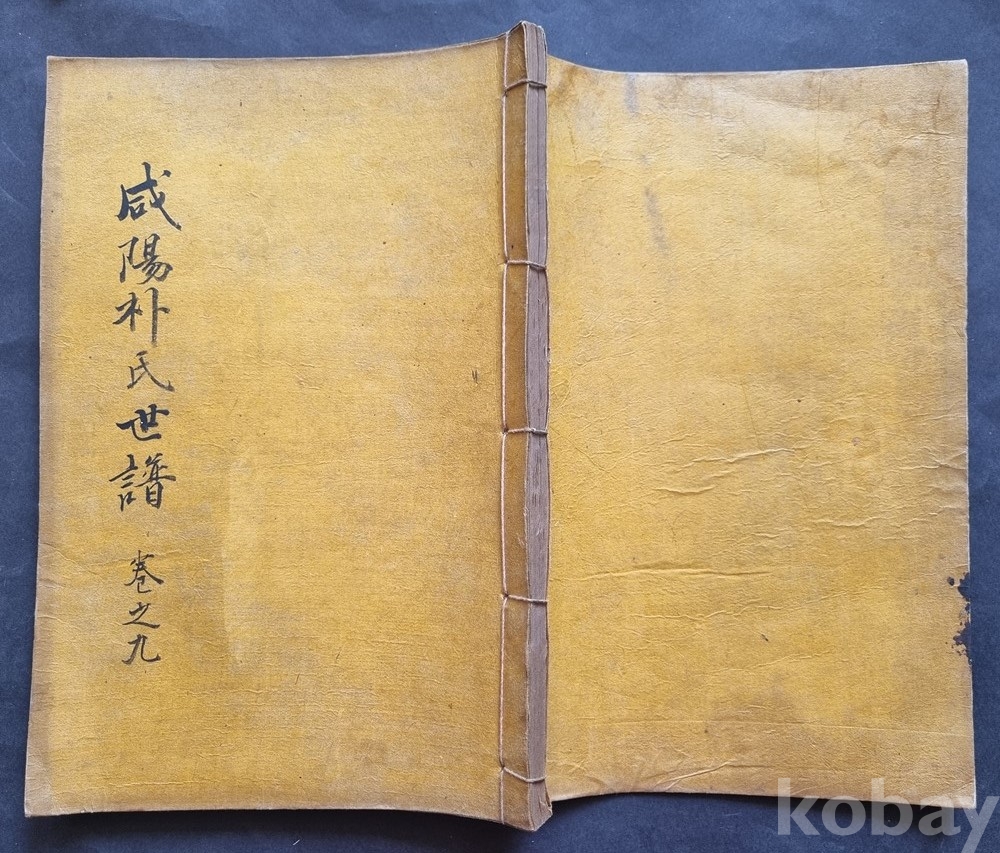 咸陽朴氏世譜 卷之九
kobay